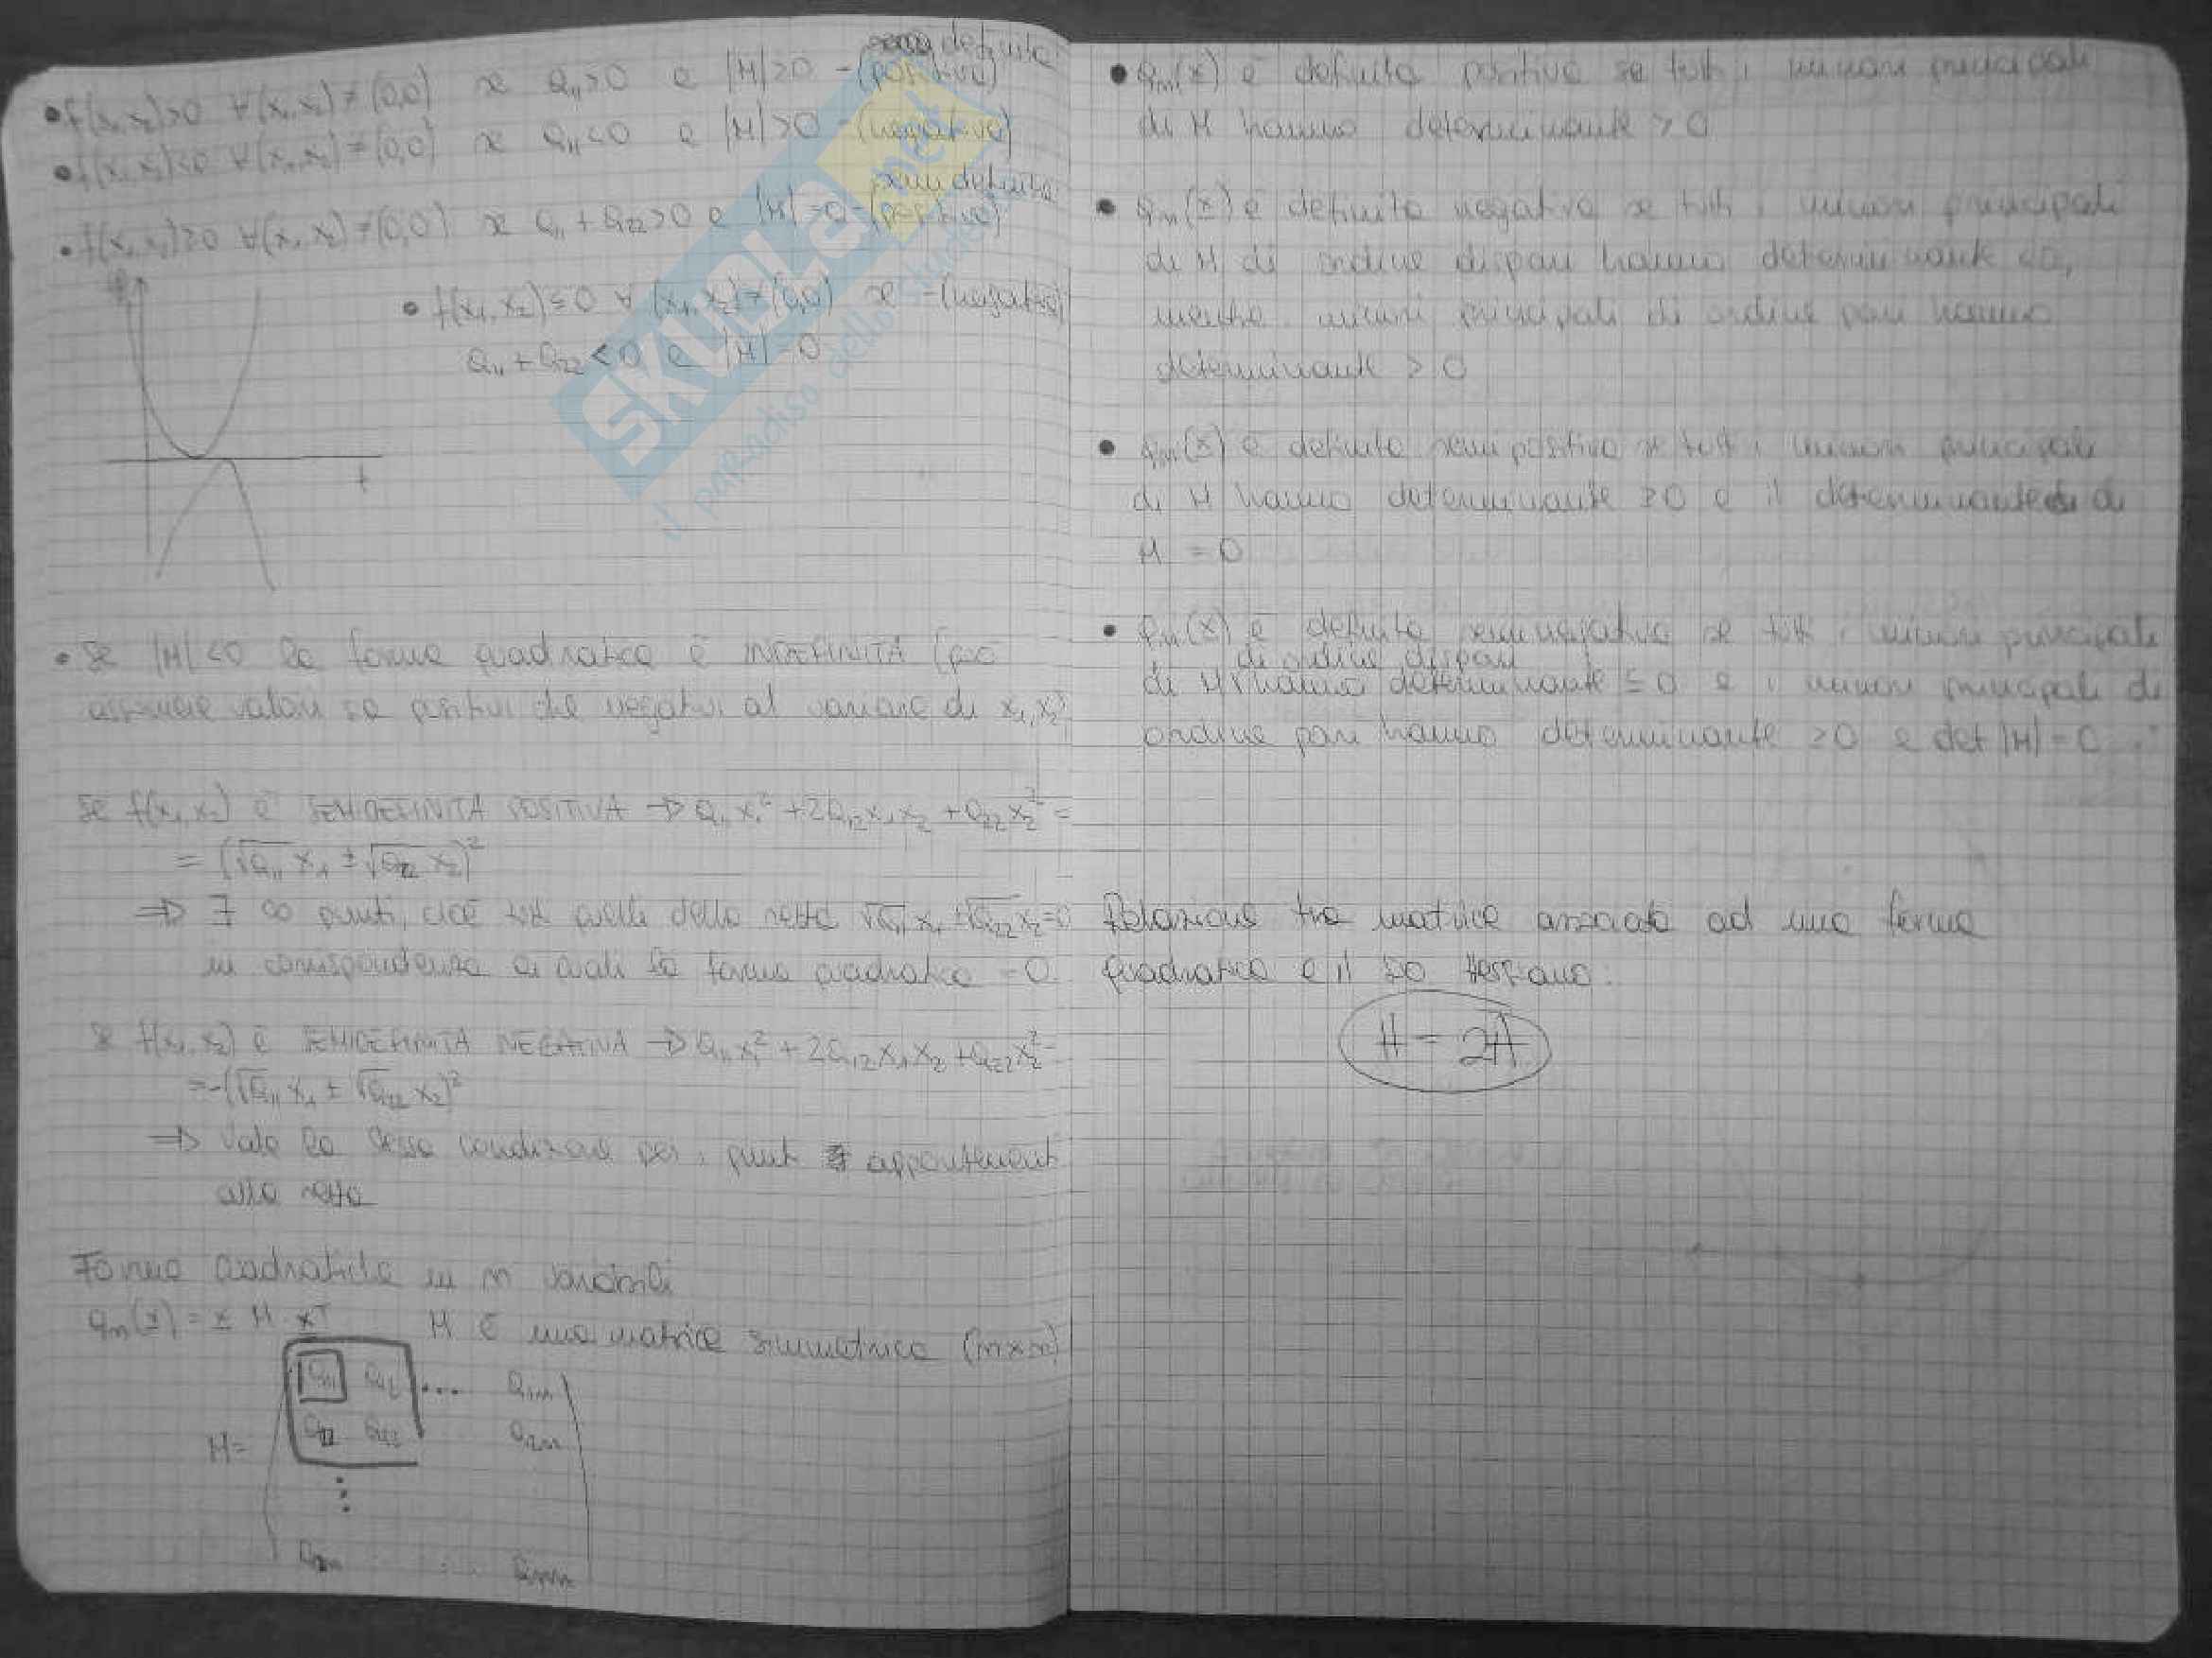 definita
• f(x₁,x₂)>0 ∀(x₁,x₂)≠(0,0) se a₁₁>0 e |H|>0 - (positiva)
• f(x₁,x₂)<0 ∀(x₁,x₂)≠(0,0) se a₁₁<0 e |H|>0 - (negativa)
semidefinita
• f(x₁,x₂)≥0 ∀(x₁,x₂)≠(0,0) se a₁₁+a₂₂>0 e |H|=0 - (positiva)
• f(x₁,x₂)≤0 ∀(x₁,x₂)≠(0,0) se - (negativa)
a₁₁+a₂₂<0 e |H|=0
t
• Se |H|<0 la forma quadratica è INDEFINITA (può
assumere valori sia positivi che negativi al variare di x₁,x₂)
Se f(x₁,x₂) è SEMIDEFINITA POSITIVA → a₁₁x₁²+2a₁₂x₁x₂+a₂₂x₂²=
= (√a₁₁ x₁ ± √a₂₂ x₂)²
⇒ ∃ ∞ punti, cioè tutti quelli della retta √a₁₁ x₁ ± √a₂₂ x₂=0
in corrispondenza ai quali la forma quadratica =0.
Se f(x₁,x₂) è SEMIDEFINITA NEGATIVA → a₁₁x₁²+2a₁₂x₁x₂+a₂₂x₂²=
=-(√a₁₁ x₁ ± √a₂₂ x₂)²
⇒ Vale la stessa condizione per i punti appartenenti
alla retta
Forme quadratiche in n variabili
qn(x) = x H xᵀ H è una matrice simmetrica (n×n)
a₁₁ a₁₂ ... a₁n
H= a₁₂ a₂₂ a₂n
⋮
a₁n .. ann
• qn(x) è definita positiva se tutti i minori principali
di H hanno determinante > 0
• qn(x) è definita negativa se tutti i minori principali
di H di ordine dispari hanno determinante <0,
mentre i minori principali di ordine pari hanno
determinante > 0
• qn(x) è definita semipositiva se tutti i minori principali
di H hanno determinante ≥0 e il determinante di
H = 0
• qn(x) è definita seminegativa se tutti i minori principali
di ordine dispari
di H hanno determinante ≤0 e i minori principali di
ordine pari hanno determinante ≥0 e det |H|=0
Relazione tra matrice associata ad una forma
quadratica e il suo Hessiano.
H = 2A
SKUOLA.net
il paradiso dello studente